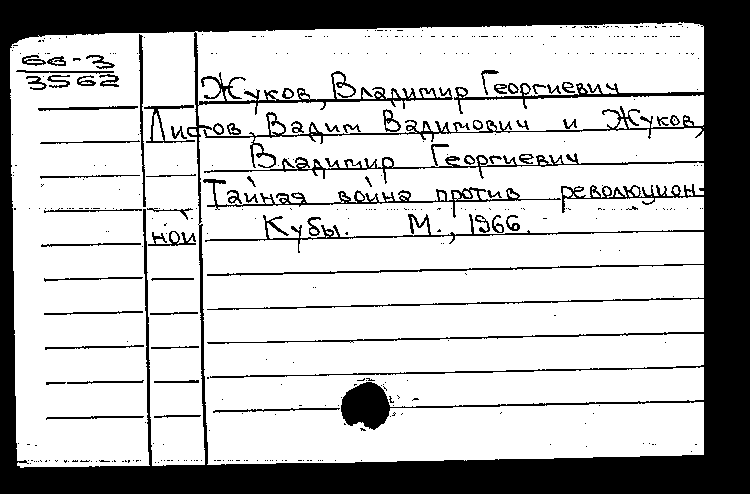 66-3
3562
Жуков, Владимир Георгиевич
Листов, Вадим Вадимович и Жуков,
Владимир Георгиевич
Тайная война против революцион-
ной Кубы. М., 1966.